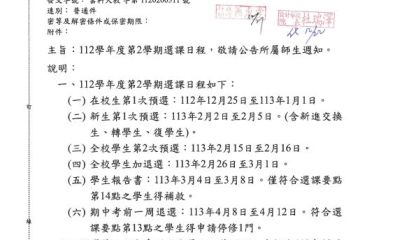 速別：普通件
密等及解密條件或保密期限：
附件：
主旨：112學年度第2學期選課日程，敬請公告所屬師生週知。
說明：
一、112學年度第2學期選課日程如下：
(一) 在校生第1次預選：112年12月25日至113年1月1日。
(二) 新生第1次預選：113年2月2日至2月5日。(含新進交換
生、轉學生、復學生)。
(三) 全校學生第2次預選：113年2月15日至2月16日。
(四) 全校學生加退選：113年2月26日至3月1日。
(五) 學生報告書：113年3月4日至3月8日。僅符合選課要點
第14點之學生得補救。
(六) 期中考前一周退選：113年4月8日至4月12日。符合選
課要點第13點之學生得申請停修1門。
訂
線